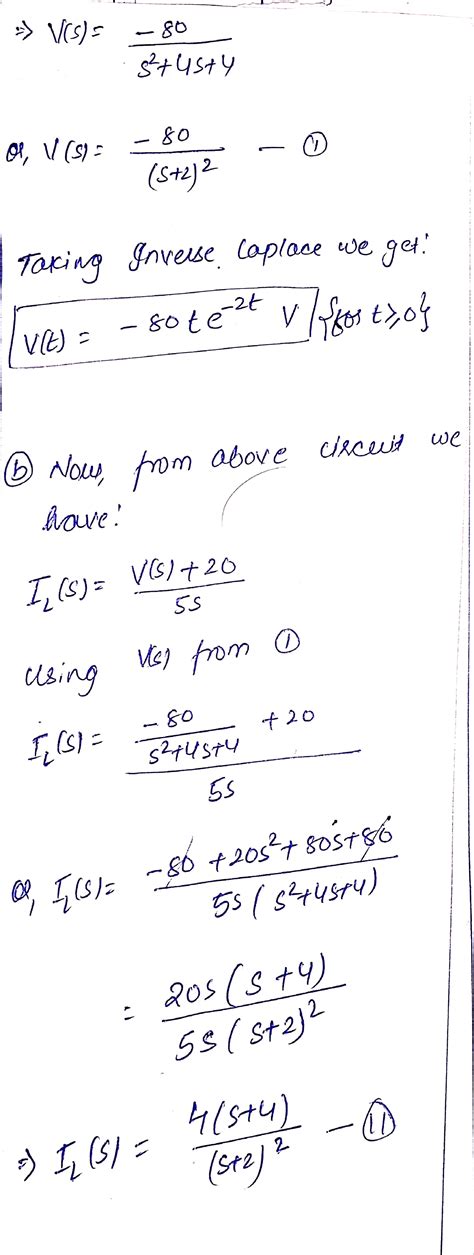 => V(s) = -80 / (s²+4s+4)
or, V(s) = -80 / (s+2)² — ①
Taking Inverse Laplace we get:
V(t) = -80te^(-2t) V {for t≥0}
ⓑ Now, from above circuit we
have:
I_L(s) = (V(s)+20) / 5s
using V(s) from ①
I_L(s) = (-80/(s²+4s+4) + 20) / 5s
or, I_L(s) = (-80+20s²+80s+80) / (5s(s²+4s+4))
= 20s(s+4) / (5s(s+2)²)
=> I_L(s) = 4(s+4) / (s+2)² — ⑪